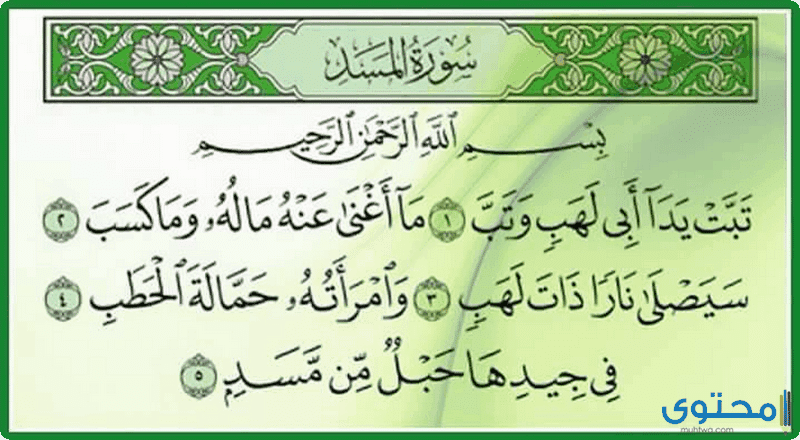 سُورَةُ المَسَدِ
بِسْمِ ٱللَّهِ ٱلرَّحْمَٰنِ ٱلرَّحِيمِ
تَبَّتْ يَدَآ أَبِى لَهَبٍ وَتَبَّ ١ مَآ أَغْنَىٰ عَنْهُ مَالُهُۥ وَمَا كَسَبَ ٢
سَيَصْلَىٰ نَارًا ذَاتَ لَهَبٍ ٣ وَٱمْرَأَتُهُۥ حَمَّالَةَ ٱلْحَطَبِ ٤
فِى جِيدِهَا حَبْلٌ مِّن مَّسَدٍۭ ٥
محتوى
muhtwa.com